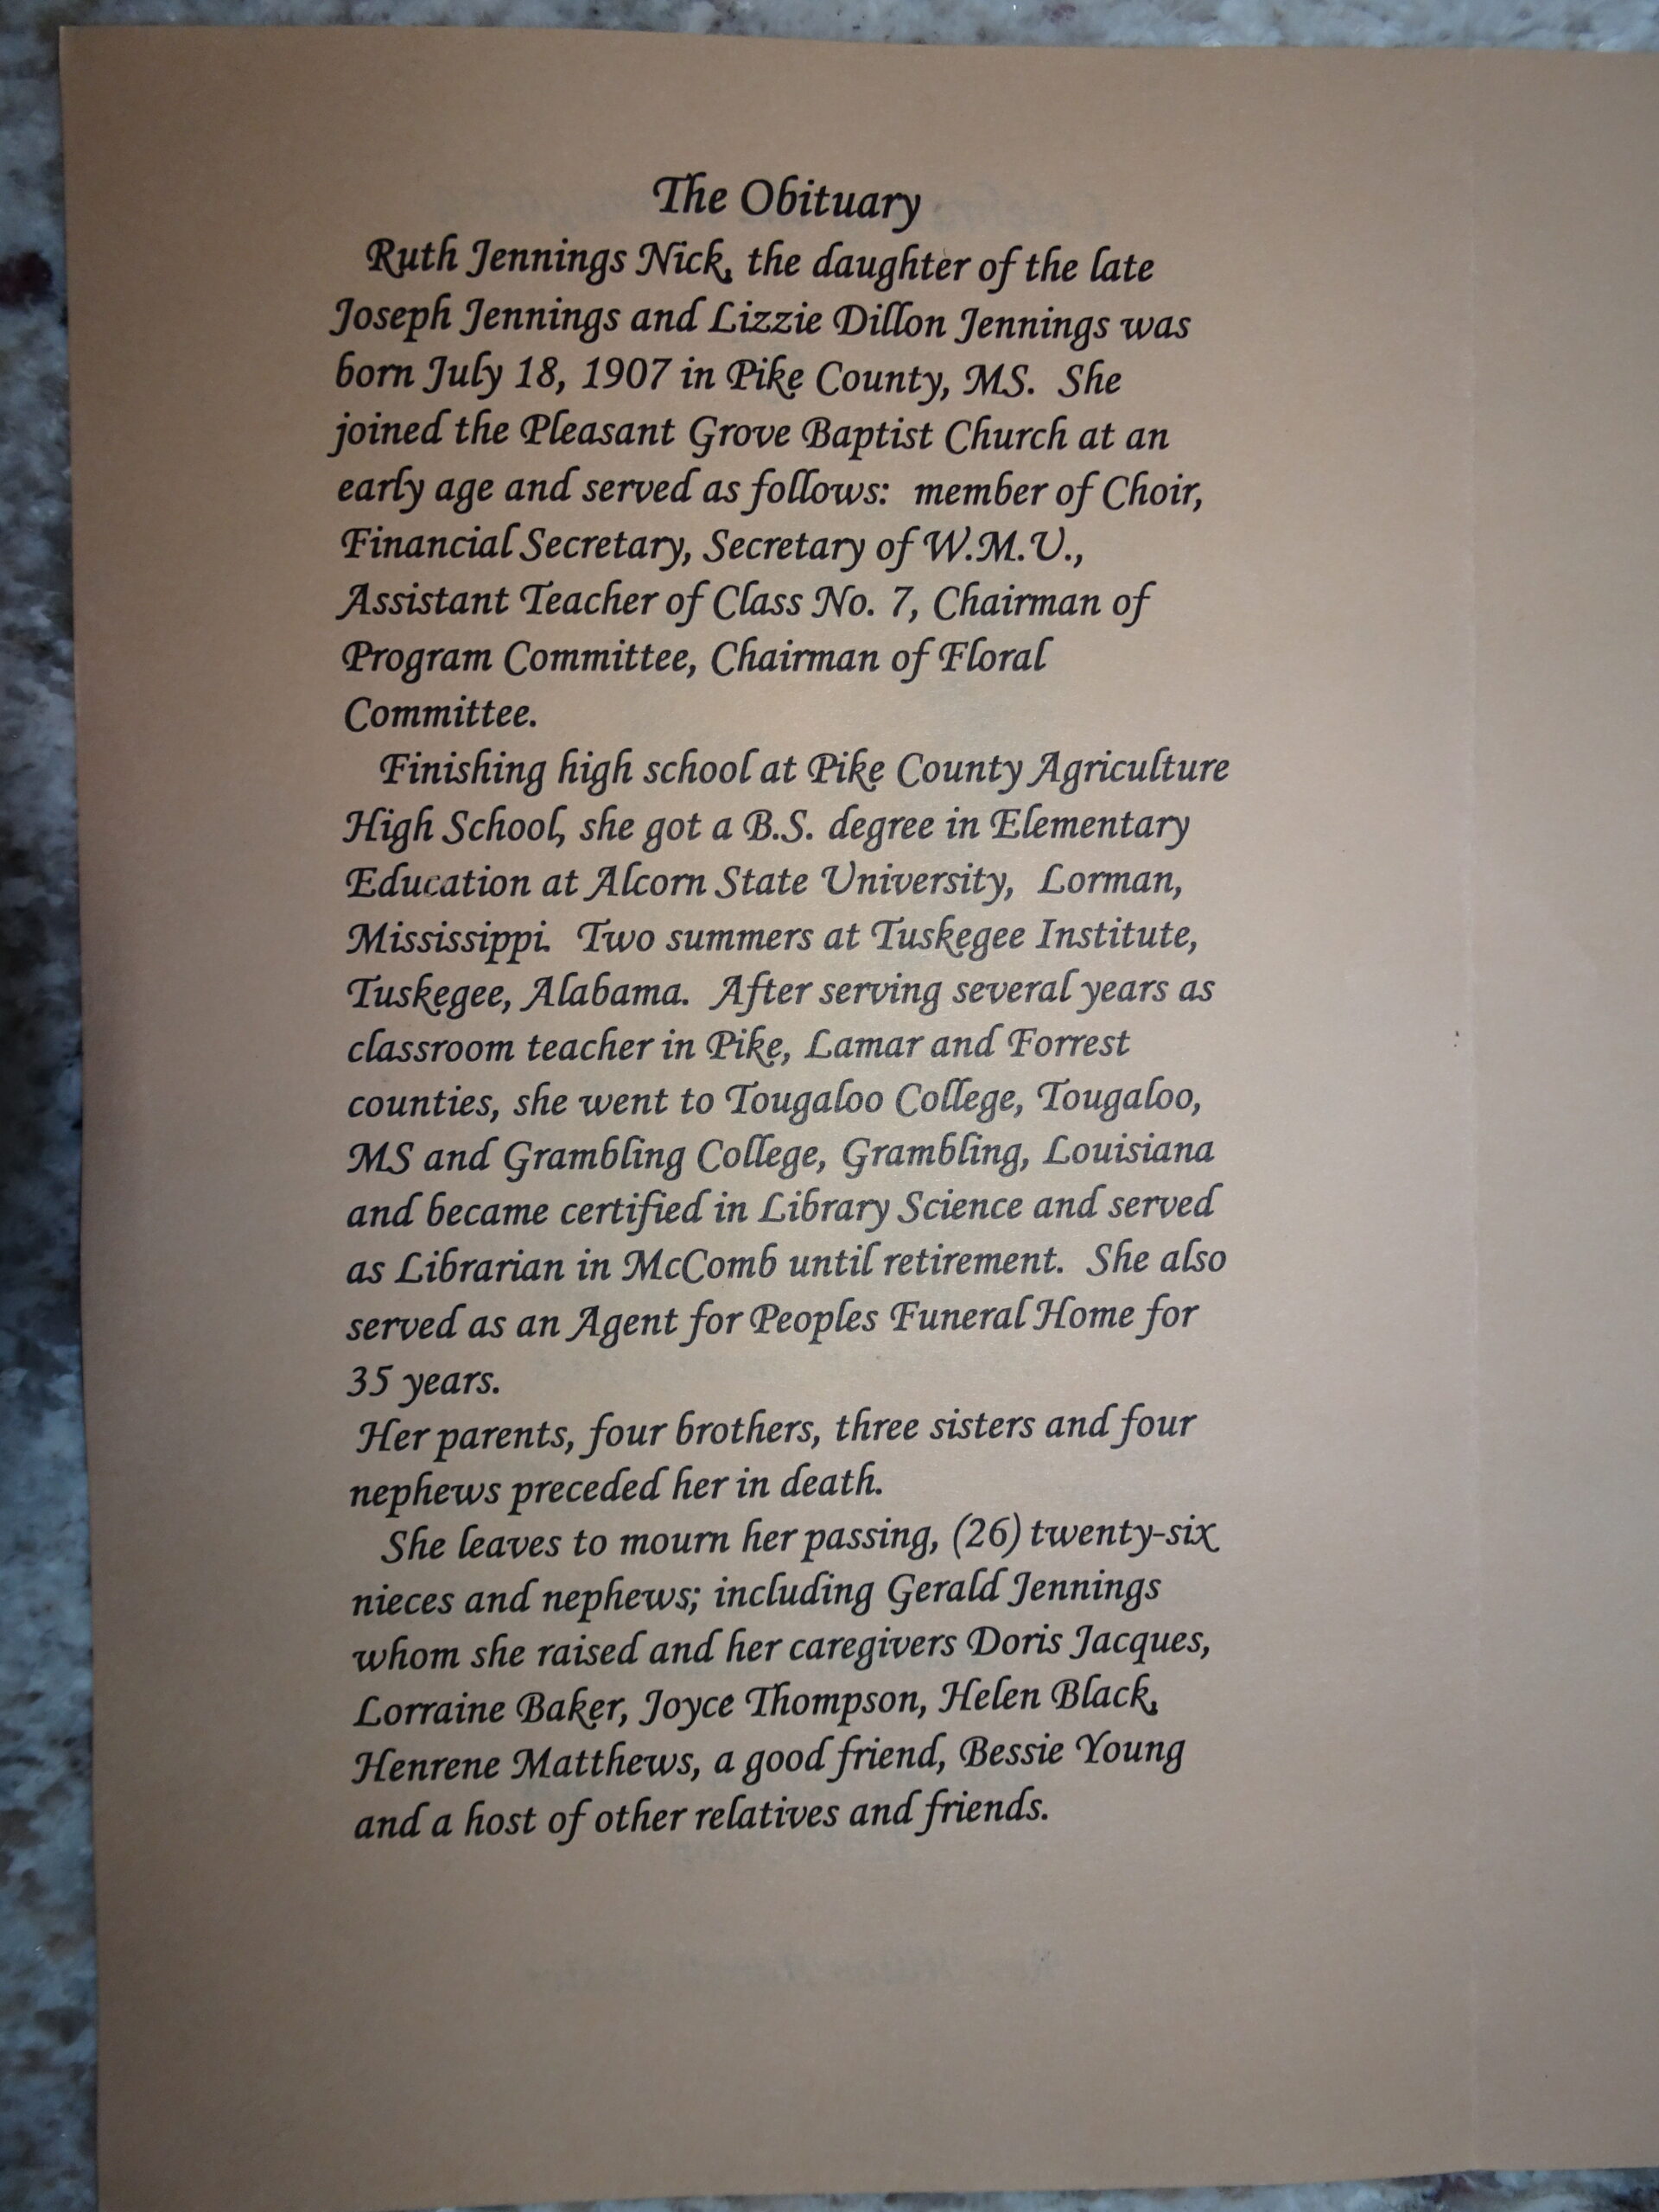 The Obituary
Ruth Jennings Nick, the daughter of the late
Joseph Jennings and Lizzie Dillon Jennings was
born July 18, 1907 in Pike County, MS.  She
joined the Pleasant Grove Baptist Church at an
early age and served as follows:  member of Choir,
Financial Secretary, Secretary of W.M.U.,
Assistant Teacher of Class No. 7, Chairman of
Program Committee, Chairman of Floral
Committee.
Finishing high school at Pike County Agriculture
High School, she got a B.S. degree in Elementary
Education at Alcorn State University,  Lorman,
Mississippi.  Two summers at Tuskegee Institute,
Tuskegee, Alabama.  After serving several years as
classroom teacher in Pike, Lamar and Forrest
counties, she went to Tougaloo College, Tougaloo,
MS and Grambling College, Grambling, Louisiana
and became certified in Library Science and served
as Librarian in McComb until retirement.  She also
served as an Agent for Peoples Funeral Home for
35 years.
Her parents, four brothers, three sisters and four
nephews preceded her in death.
She leaves to mourn her passing, (26) twenty-six
nieces and nephews; including Gerald Jennings
whom she raised and her caregivers Doris Jacques,
Lorraine Baker, Joyce Thompson, Helen Black,
Henrene Matthews, a good friend, Bessie Young
and a host of other relatives and friends.